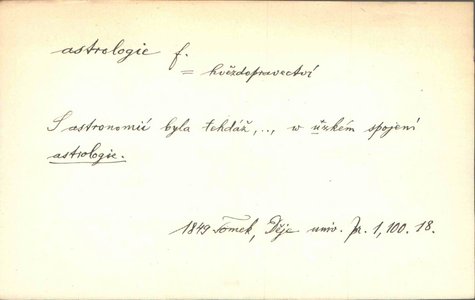 astrologie f.
= hvězdopravectví
S astronomií byla tehdáž,.., w úzkém spojení
astrologie.
1849 Tomek, Děje univ. Pr. 1, 100. 18.